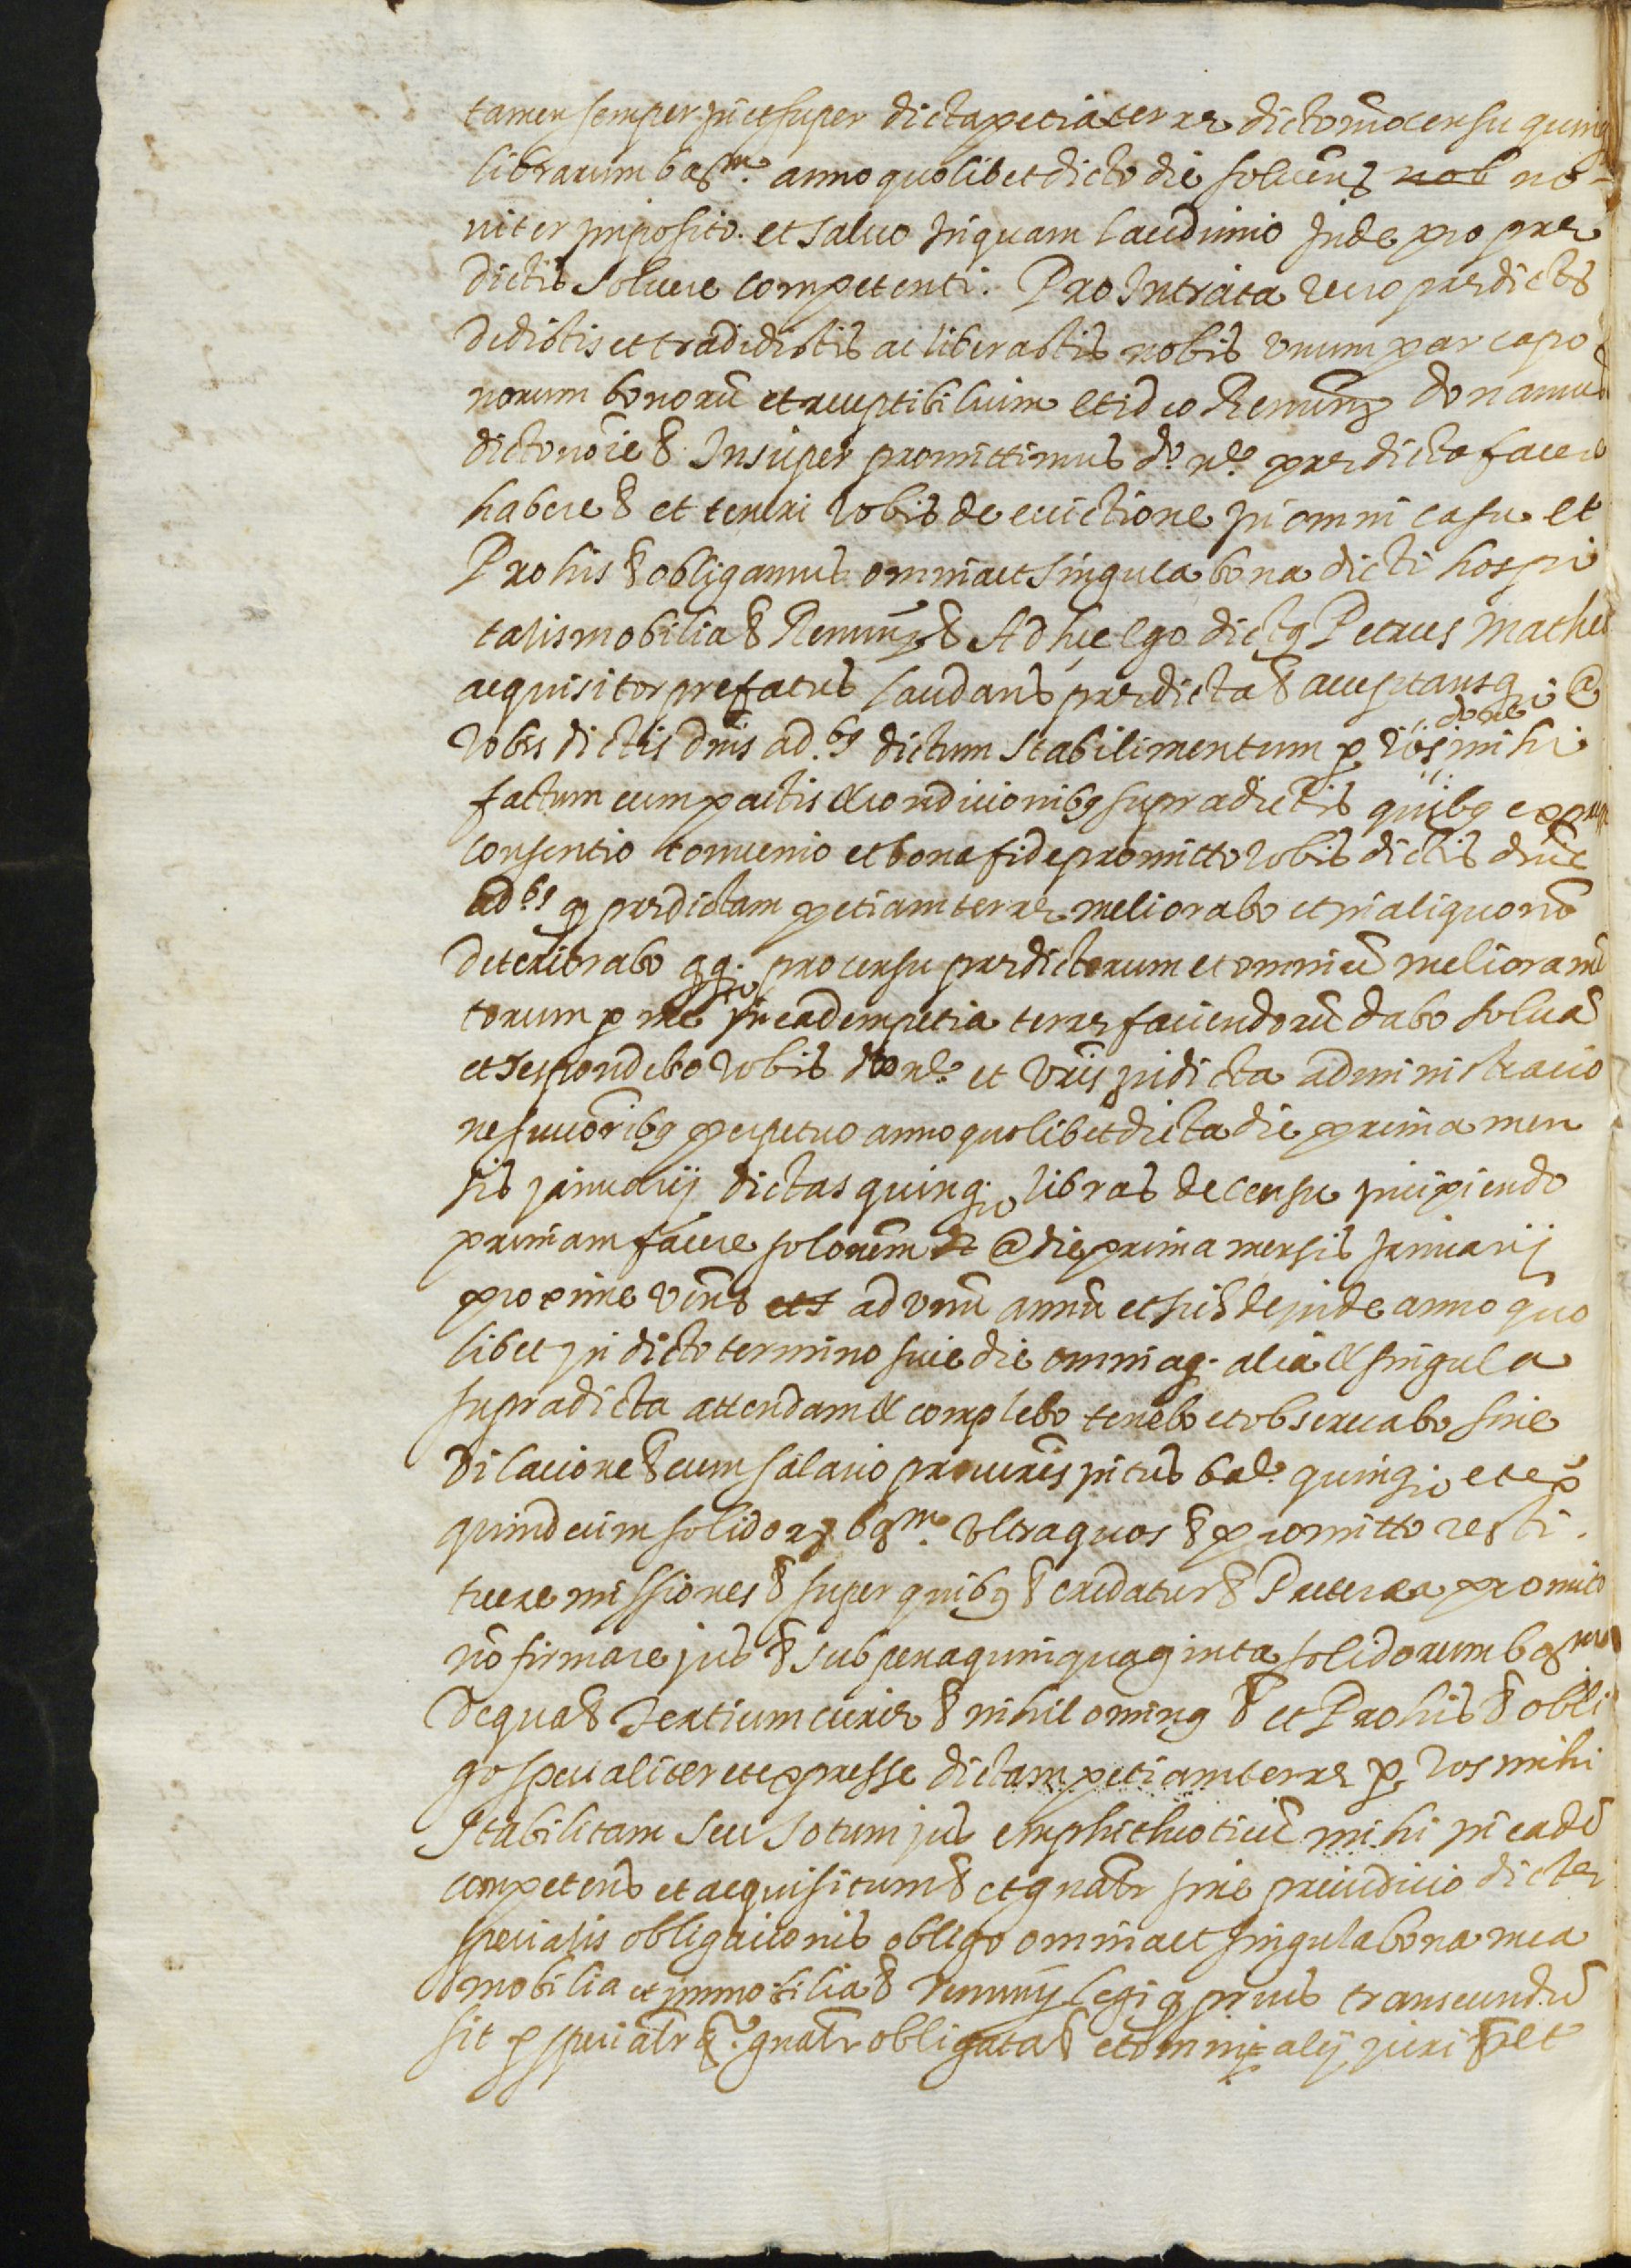 tamen semper in et super dicta petia terræ dicto nõ censu quinq̨
librarum bar.ne anno quolibet dicto die soluens nob no-
uiter imposito. et saluo inquam laudimio inde pro præ
dictis soluere competenti. Pro Intrata vero prædictis
dedistis et tradidistis ac liberastis nobis vnum par capo
norum bonorũ et receptibilium et ideo Renunẽ donamus
dicto noĩe & Insuper promittimus do. ne. prædicta facere
habere & et teneri vobis de euictione in omni casu et
Pro his & obligamus omnia et singula bona dicti hospi
talis mobilia & Renunẽ & Ad hæc ego dictq Petrus Mathe
acquisitor prefatus laudans prædicta & acceptansq; @
vobis dictis dñis ad.bq dictum stabilimentum p̱ vos done mihi
factum cum pactis & condicionibq supradictis quibq expresse
consentio conuenio et bona fide promitto vobis dictis dñis
ad.bq q prædictam petiam terræ meliorabo et in aliquo nõ
deteriorabo qq. pro censu prædictorum et omniũ melioramẽ
torum p̱ me in eadem petia terræ faciendorũ dabo soluã
et respondebo vobis do ne. et vr̃is in dicta administracio
ne succõribq perpetuo anno quolibet dicta die prima men
sis januarij dictas quinq; libras de censu incipiendo
primam facere solonem de @ die prima mensis Januarij
proxime veñs et s ad vnũ annũ et sic deinde anno quo
libet in dicto termino siue die omniaq; alia & singula
supradicta attendam & complebo tenebo et obseruabo sine
dilacione & cum salario procuris intus bar.e quinq; et ex.ª
quindecim solidorȝ bar.ne vltra quos & promitto resti
tuere missiones & super quibq & credatur & Preterea promito
nõ firmare jus & sub pena quinquaginta solidorum bar.ne
De qua & Tertium curiæ & nihilominq & et Pro his & obli
go specialiter et expresse dictam petiam terræ p̱ vos mihi
stabilitam seu totum jus emphitheoticũ mihi in eadẽ
competens et acquisitum & et gñalr sine preiudicio dictæ
specialis obligacionis obligo omnia et singula bona mea
mobilia et immobilia & renunẽ legi q prius transeundũ
sit p̱ speciałr q.ª gñałr obligata & et omni alij juri & et